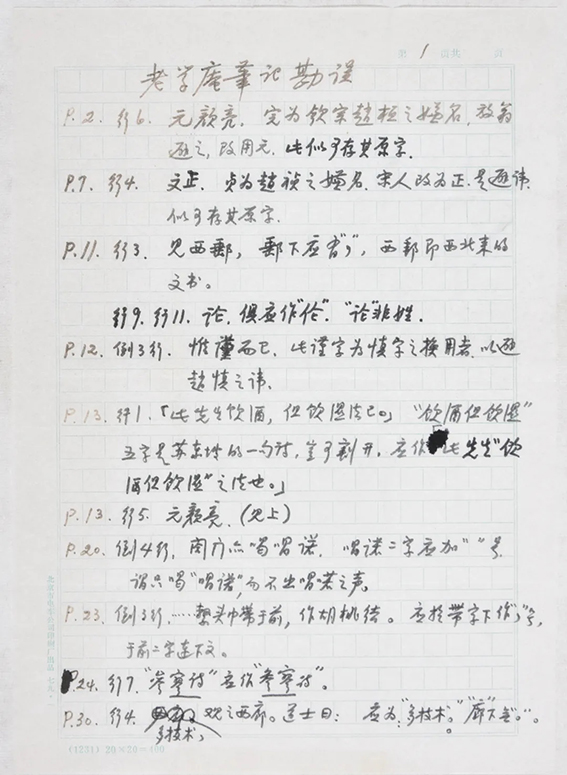 第 1 页共 页
老学庵笔记勘误
P.2. 行6. 元颜亮. 完为钦宗赵桓之嫌名, 放翁
避之, 改用元. 此似可存其原字.
P.7. 行4. 文正. 贞为赵祯之嫌名. 宋人改为正. 是避讳.
似可存其原字.
P.11. 行3. 见西邮, 邮下应有",", 西邮即西北来的
文书。
行9. 行11. 论, 俱应作"伦". "论"非姓.
P.12. 倒3行. 惟谨而已. 此谨字为慎字之换用者. 以避
赵慎之讳.
P.13. 行1.「此先生饮酒, 但饮湿法已。」 "饮酒但饮湿"
五字是苏东坡的一句诗, 岂可割开. 应作 此先生"饮
酒但饮湿"之法也。」
P.13. 行5. 元颜亮. (见上)
P.20. 倒4行, 阁门只喝唱诺. 唱诺二字应加" "号.
谓只喝"唱诺", 而不出唱喏之声。
P.23. 倒3行. ……整头巾带于前, 作胡桃结。 应于带字下作","号,
于前二字连下文.
P.24. 行7. "参寥诗"应作"参寥诗"。
P.30. 行4. 观之西廊。道士曰: 应为:"多技术。""廊"下无"。".
多技术,
(1231) 20×20=400